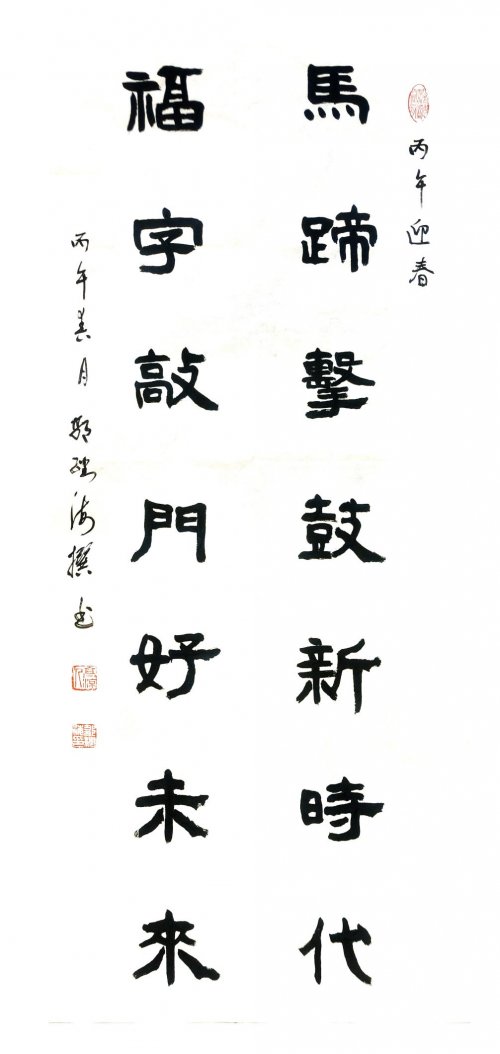 丙午迎春
馬蹄擊鼓新時代
福字敲門好未來
丙午春月 海撰书